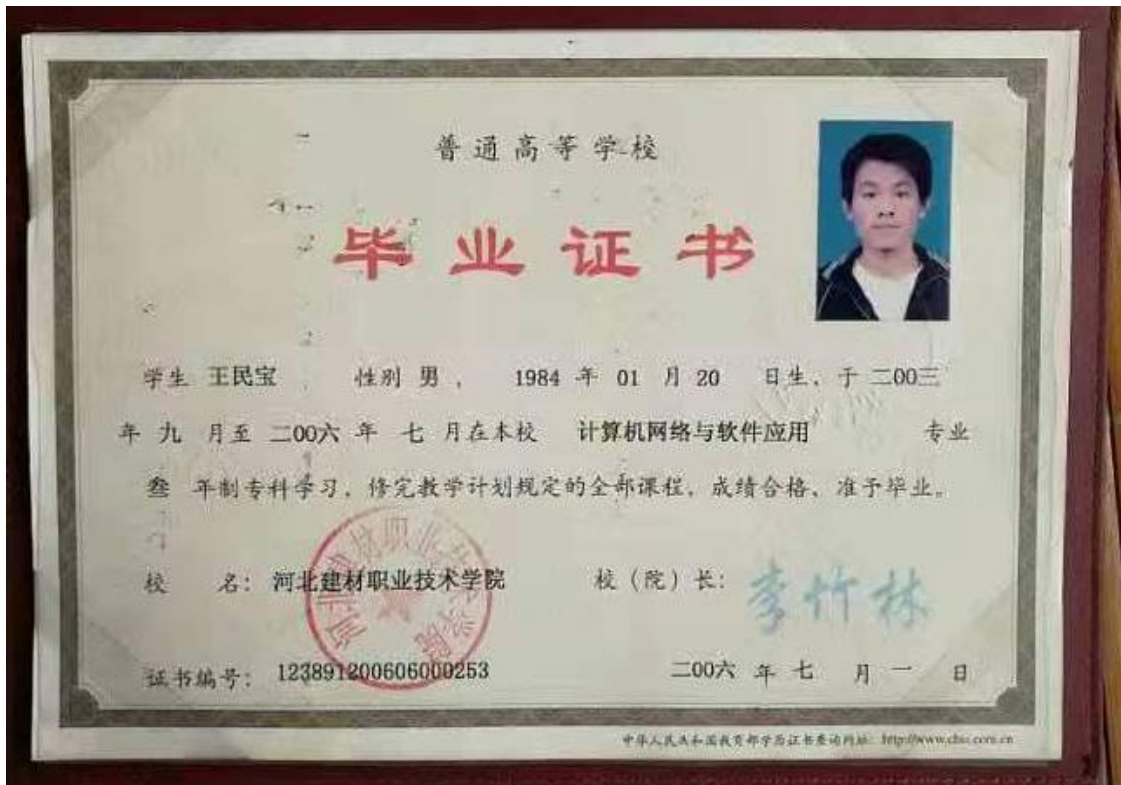 普通高等学校
毕业证书
学生 王民宝 性别 男 , 1984 年 01 月 20 日生、于 二00三
年 九 月至 二00六 年 七 月在本校 计算机网络与软件应用 专业
叁 年制专科学习、修完教学计划规定的全部课程,成绩合格、准予毕业。
校 名: 河北建材职业技术学院 校(院)长: 李竹林
河北建材职业技术学院
证书编号: 123891200606000253 二00六 年 七 月 一 日
中华人民共和国教育部学历证书查询网址: http://www.chsi.com.cn